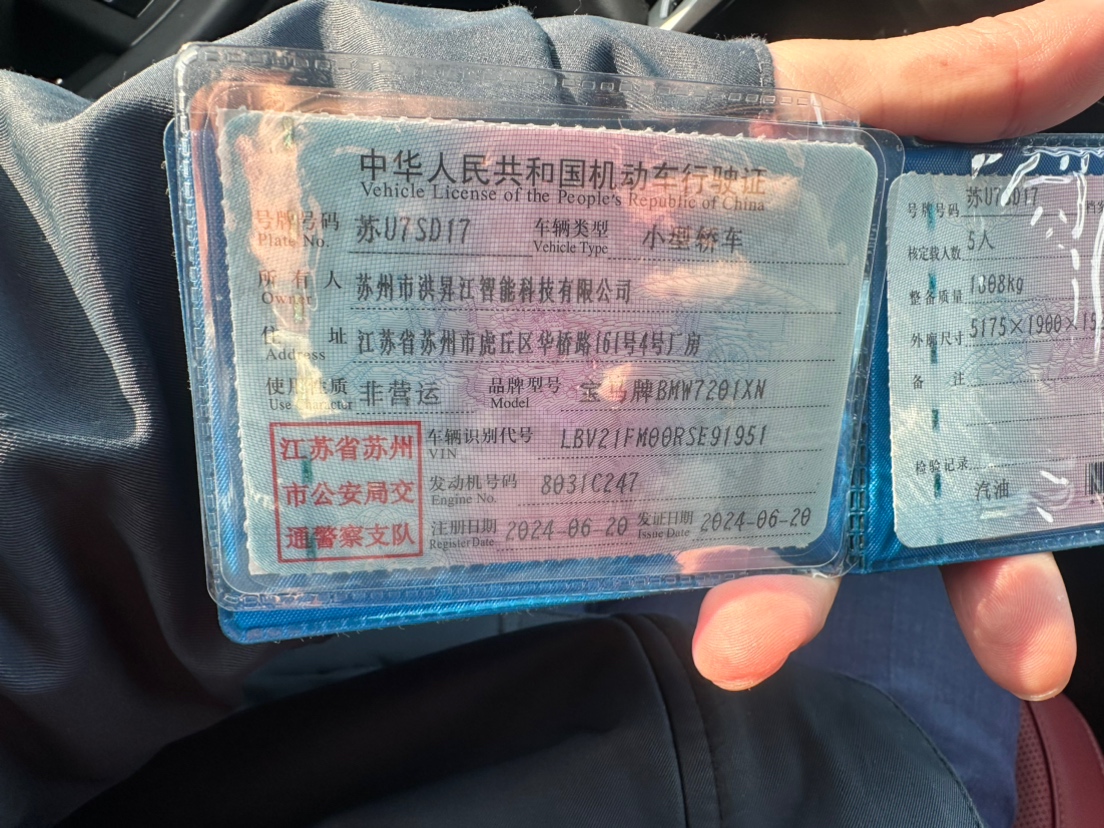 中华人民共和国机动车行驶证
Vehicle License of the People's Republic of China
号牌号码 苏U7SD17 车辆类型 小型轿车
Plate No. Vehicle Type
所有人 苏州市洪昇江智能科技有限公司
Owner
住址 江苏省苏州市虎丘区华桥路161号4号厂房
Address
使用性质 非营运 品牌型号 宝马牌BMW7201XN
Use Character Model
江苏省苏州
市公安局交
通警察支队
车辆识别代号 LBV21FM00RSE91951
VIN
发动机号码 8031C247
Engine No.
注册日期 2024-06-20 发证日期 2024-06-20
Register Date Issue Date
号牌号码 苏U7SD17
核定载人数 5人
整备质量 1308kg
外廓尺寸 5175×1900×152
备注
检验记录
汽油